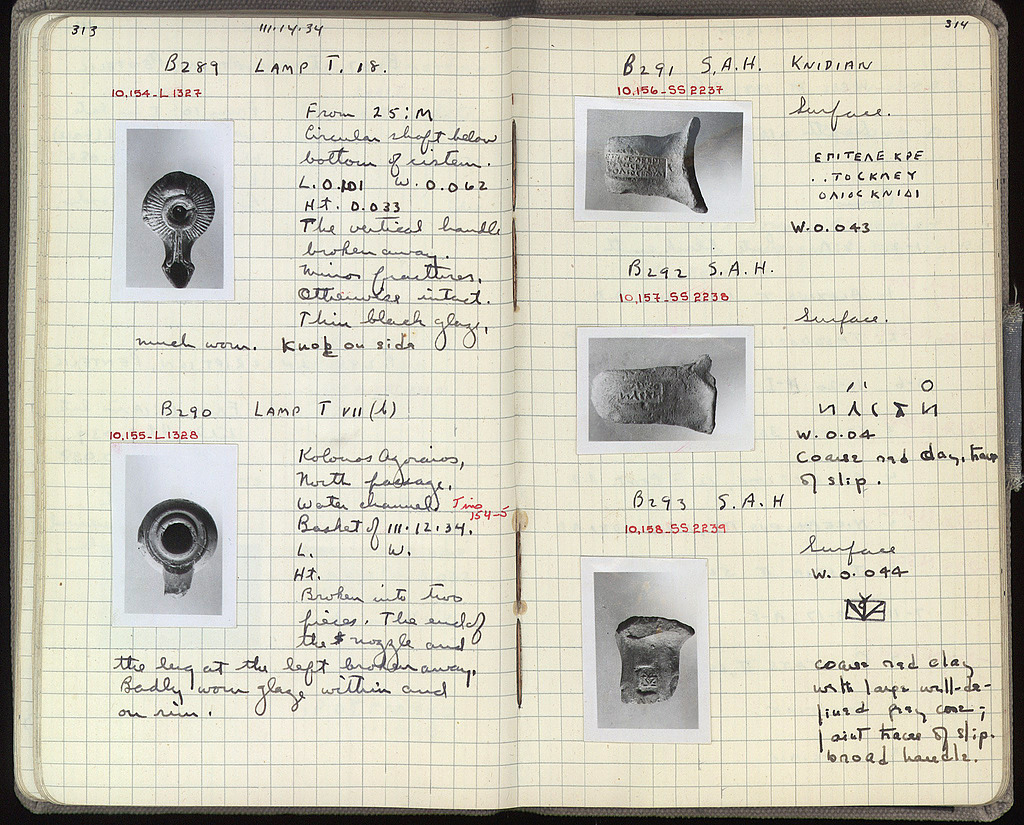 313
III.14.34
B289 LAMP T. 18.
10,154-L1327
From 25:M
Circular shaft below
bottom of cistern.
L. 0.101 W. 0.062
Ht. 0.033
The vertical handle
broken away.
Minor fractures.
Otherwise intact.
Thin black glaze,
much worn. Knob on side
B290 LAMP T VII (b)
10,155-L1328
Kolonos Agoraios,
North passage.
Water channel
154-5
Basket of III.12.34.
L. W.
Ht.
Broken into two
pieces. The end of
the nozzle and
the lug at the left broken away.
Badly worn glaze within and
on rim.
314
B291 S.A.H. KNIDIAN
10,156-SS2237
Surface.
ΕΠΙΤΕΛΕ ΚΡΕ
..ΤΟΣΚΛΕΥ
ΟΛΙΟΣ ΚΝΙΔΙ
W. 0.043
B292 S.A.H.
10,157-SS2238
Surface.
W. 0.04
Coarse red clay, traces
of slip.
B293 S.A.H
10,158-SS2239
Surface
W. 0.044
coarse red clay
with large well-de-
fined grey core;
faint traces of slip.
broad handle.